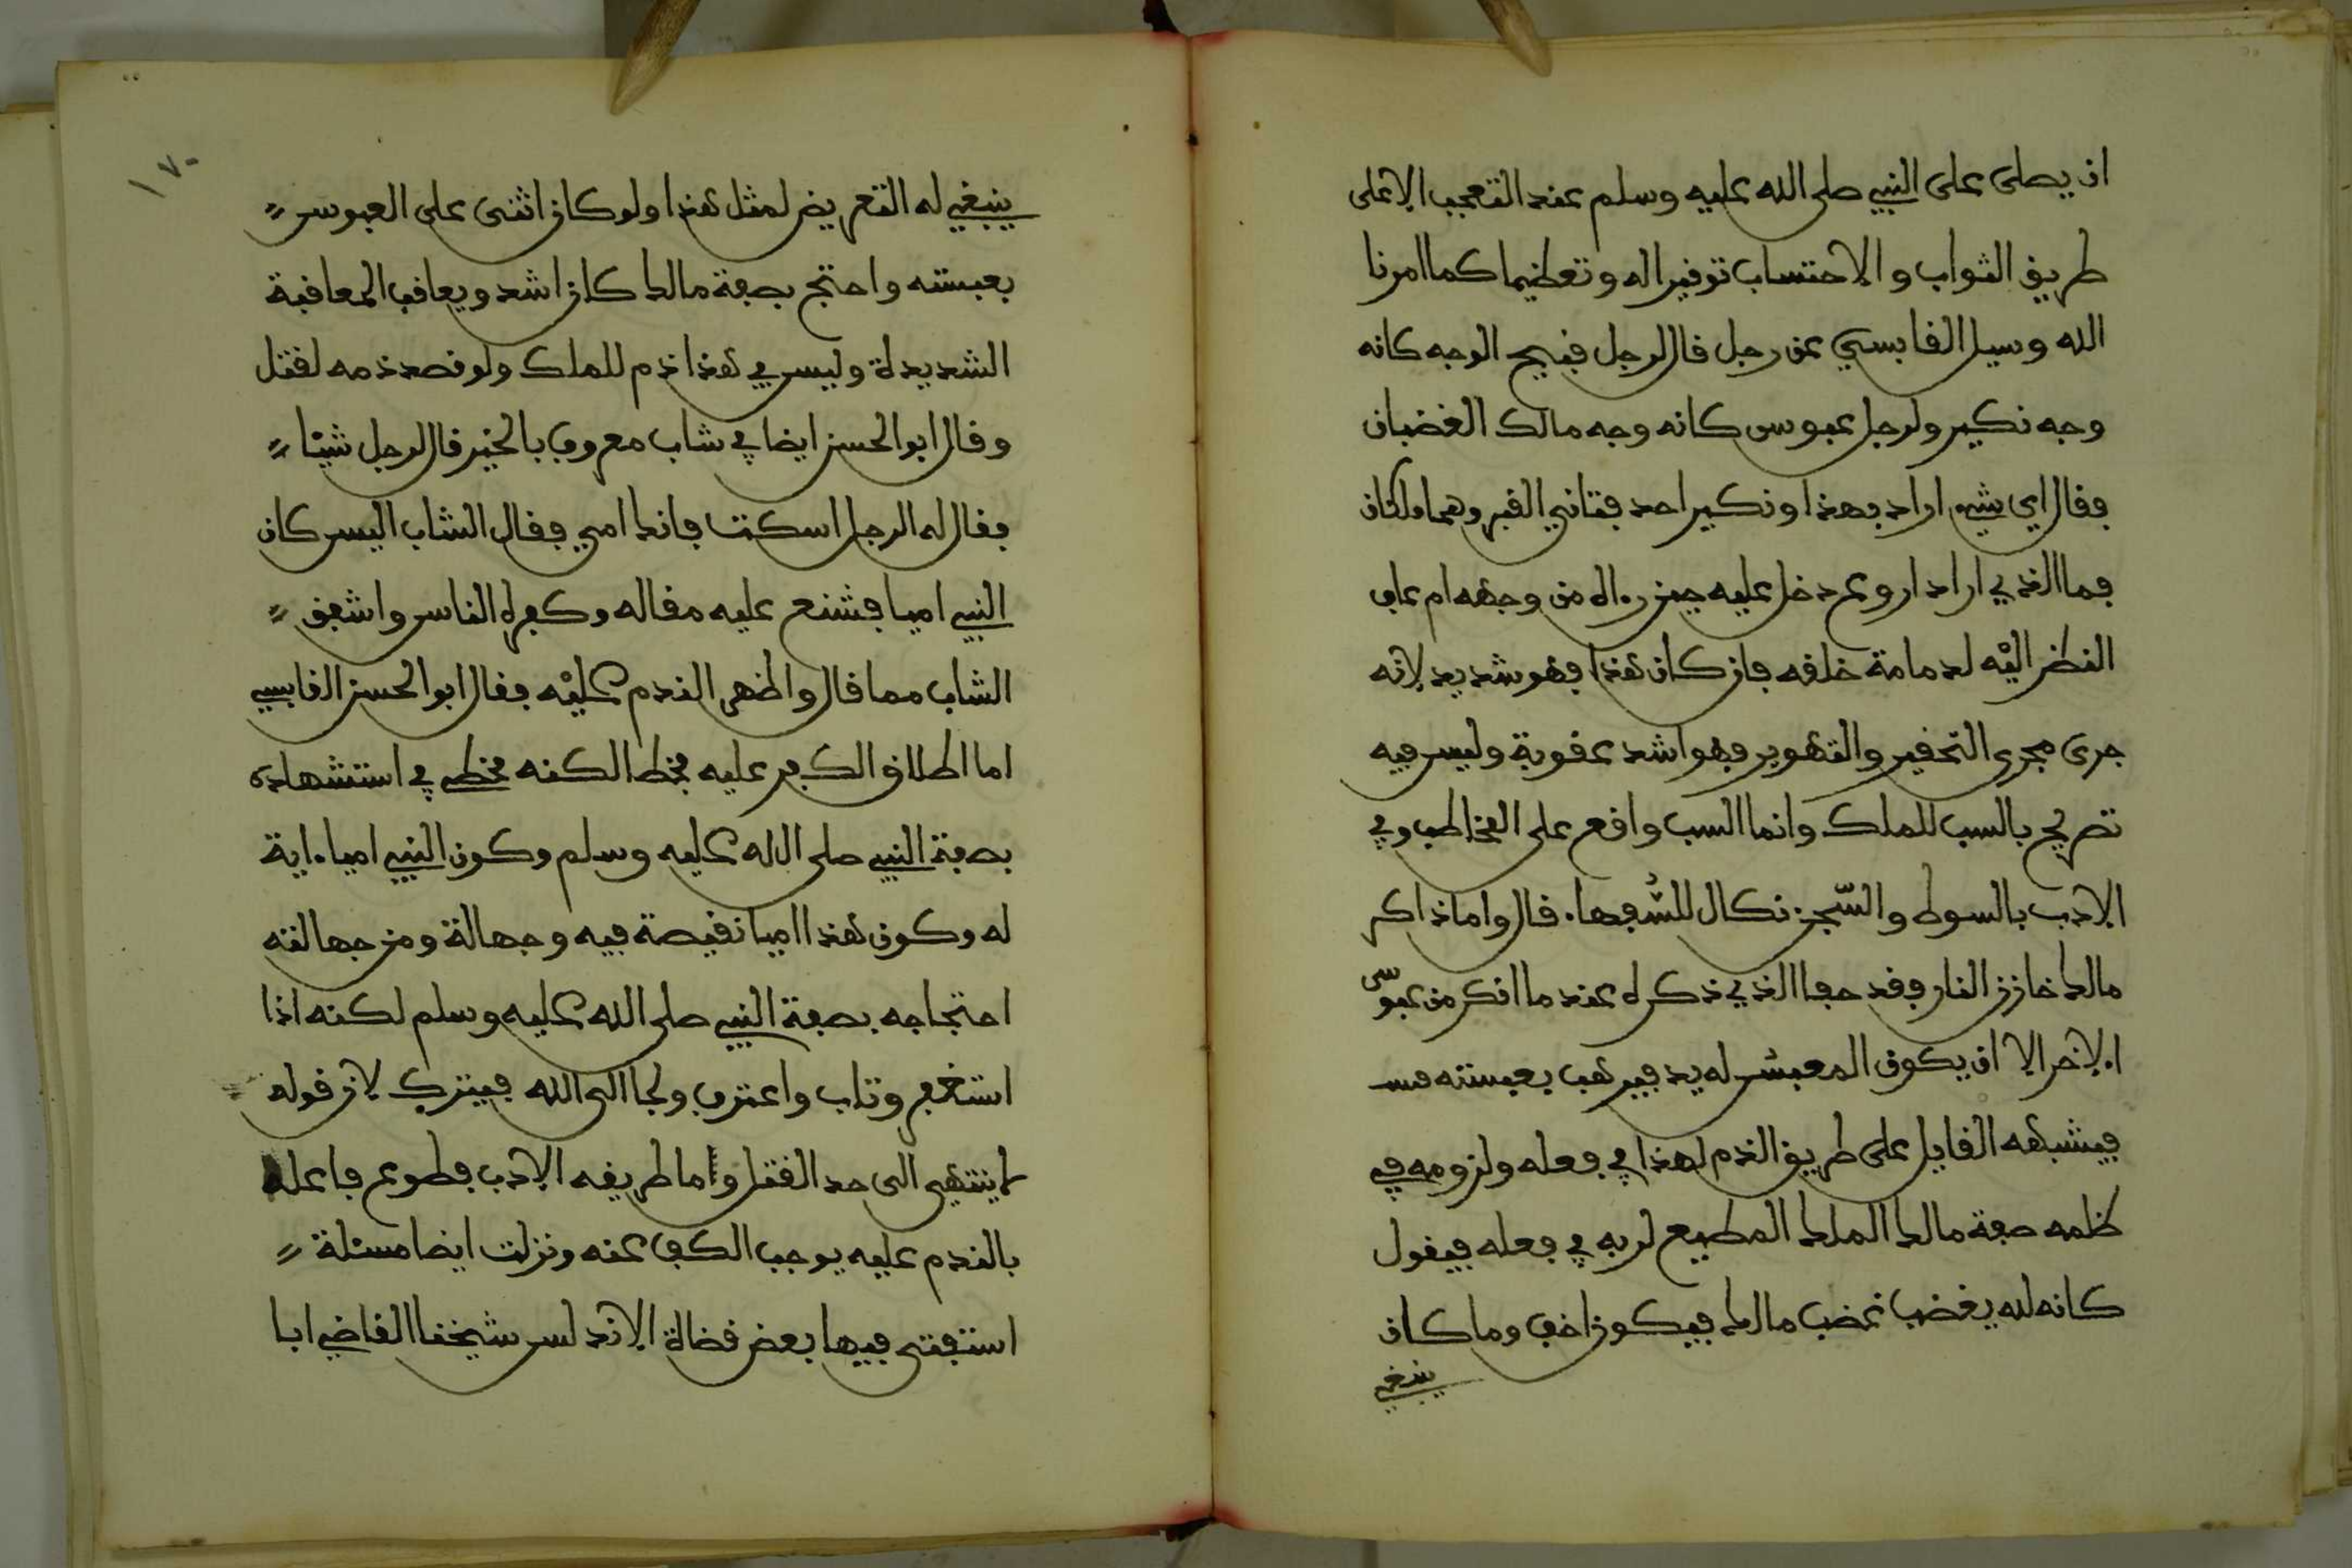 ان يصلى على النبي صلى الله عليه وسلم عند التعجب الا على
طريق الثواب والاحتساب توقيرا له وتعظيما كما امرنا
الله وسيل القابسي عن رجل قال لرجل قبيح الوجه كانه
وجه نكير ولرجل عبوس كانه وجه مالك الغضبان
فقال اي شيء اراد بهذا ونكير احد فتاني القبر وهما ملكان
فما الذي اراد اروع دخل عليه حين رءاه من وجهه ام عاف
النظر اليه لدمامة خلقه فان كان هذا فهو شديد لانه
جرى مجرى التحقير والتهوين فهو اشد عقوبة وليس فيه
تصريح بالسب للملك وانما السب واقع على المخاطب وفي
الادب بالسوط والسّجن نكال للسُّفهاء قال واما ذاكر
مالك خازن النار فقد جفا الذي ذكره عند ما انكر من عبوس
الاخر الا ان يكون المعبس له يد فيرهب بعبسته
فيشبهه القايل على طريق الذم لهذا في فعله ولزومه في
ظلمه صفة مالك الملك المطيع لربه في فعله فيقول
كانه لله يغضب غضب مالك فيكون اخف وما كان
ينبغي
١٧٠
ينبغي له التعريض لمثل هذا ولو كان اثنى على العبوس
بعبسته واحتج بصفة مالك كان اشد ويعاقب المعاقبة
الشديدة وليس في هذا ذم للملك ولو قصد ذمه لقتل
وقال ابو الحسن ايضا في شاب معروف بالخير قال لرجل شيئا
فقال له الرجل اسكت فانك امي فقال الشاب اليس كان
النبي اميا فشنع عليه مقاله وكفره الناس واشفق
الشاب مما قال واظهر الندم عليه فقال ابو الحسن القابسي
اما اطلاق الكفر عليه فخطا لكنه مخطي في استشهاده
بصفة النبي صلى الله عليه وسلم وكون النبي اميا ءاية
له وكون هذا اميا نقيصة فيه وجهالة ومن جهالته
احتجاجه بصفة النبي صلى الله عليه وسلم لكنه اذا
استغفر وتاب واعترف ولجا الى الله فيترك لان قوله
لا ينتهي الى حد القتل واما طريقه الادب فطوع فاعله
بالندم عليه يوجب الكف عنه ونزلت ايضا مسئلة
استفتى فيها بعض قضاة الاندلس شيخنا القاضي ابا